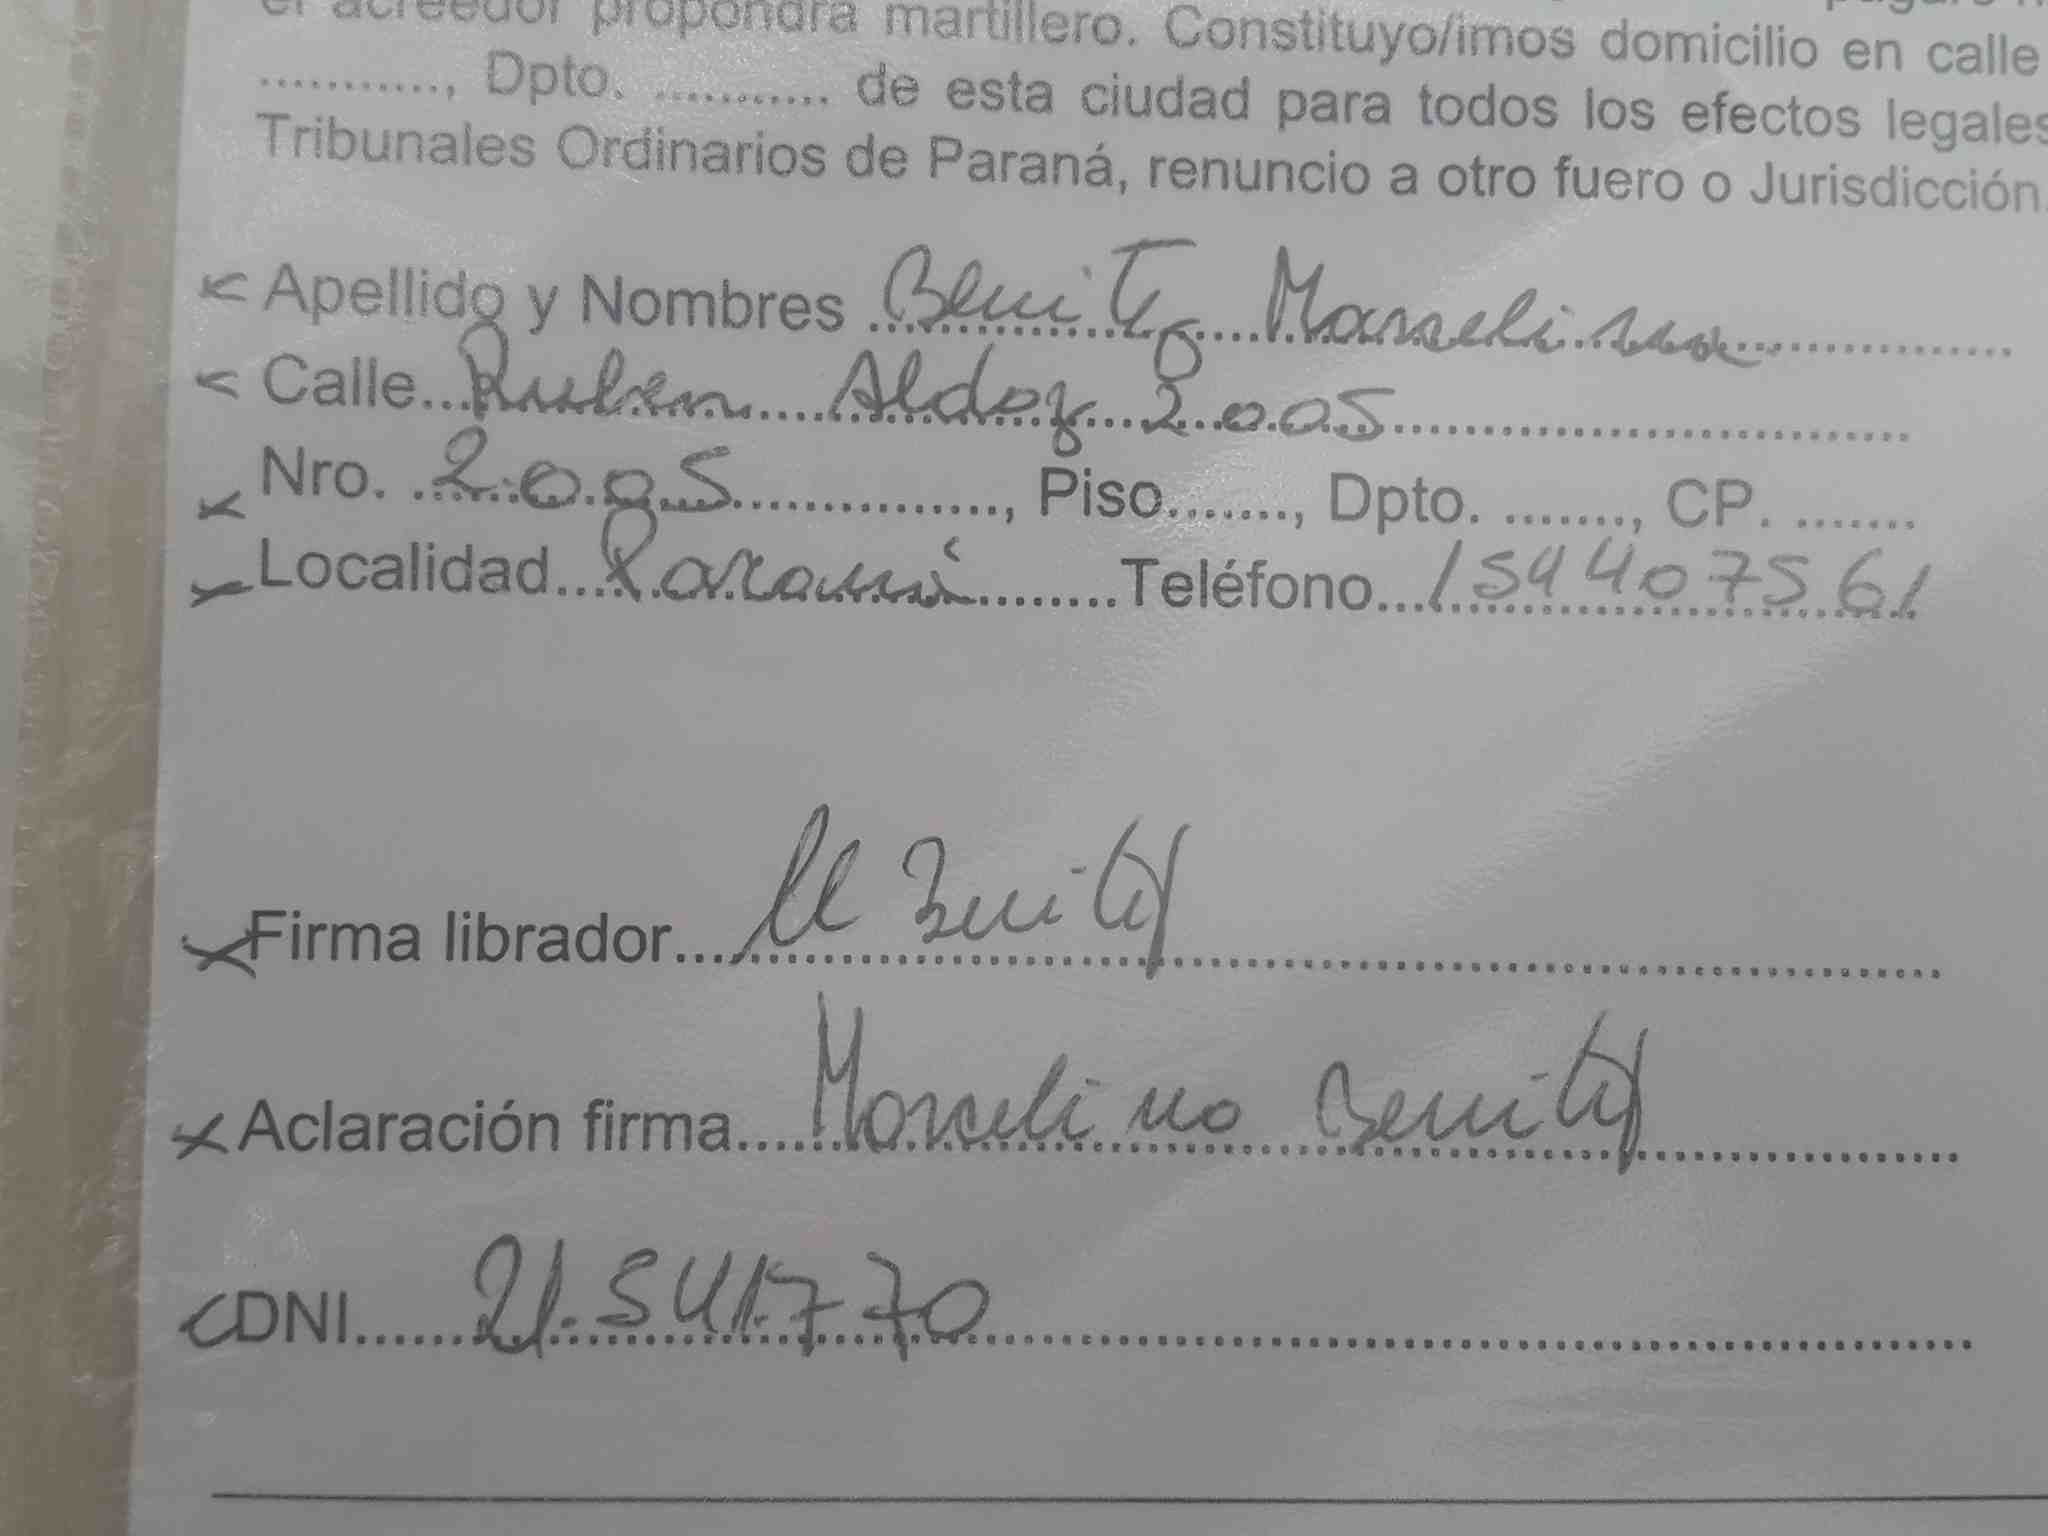 el acreedor propondrá martillero. Constituyo/imos domicilio en calle
..........., Dpto. ........... de esta ciudad para todos los efectos legales
Tribunales Ordinarios de Paraná, renuncio a otro fuero o Jurisdicción.
Apellido y Nombres Benitez Marcelino
Calle Ruben Aldoz 2005
Nro. 2005, Piso......., Dpto. ......., CP. .......
Localidad Paraná Teléfono 154407561
Firma librador M Benitez
Aclaración firma Marcelino Benitez
DNI 21.541.770